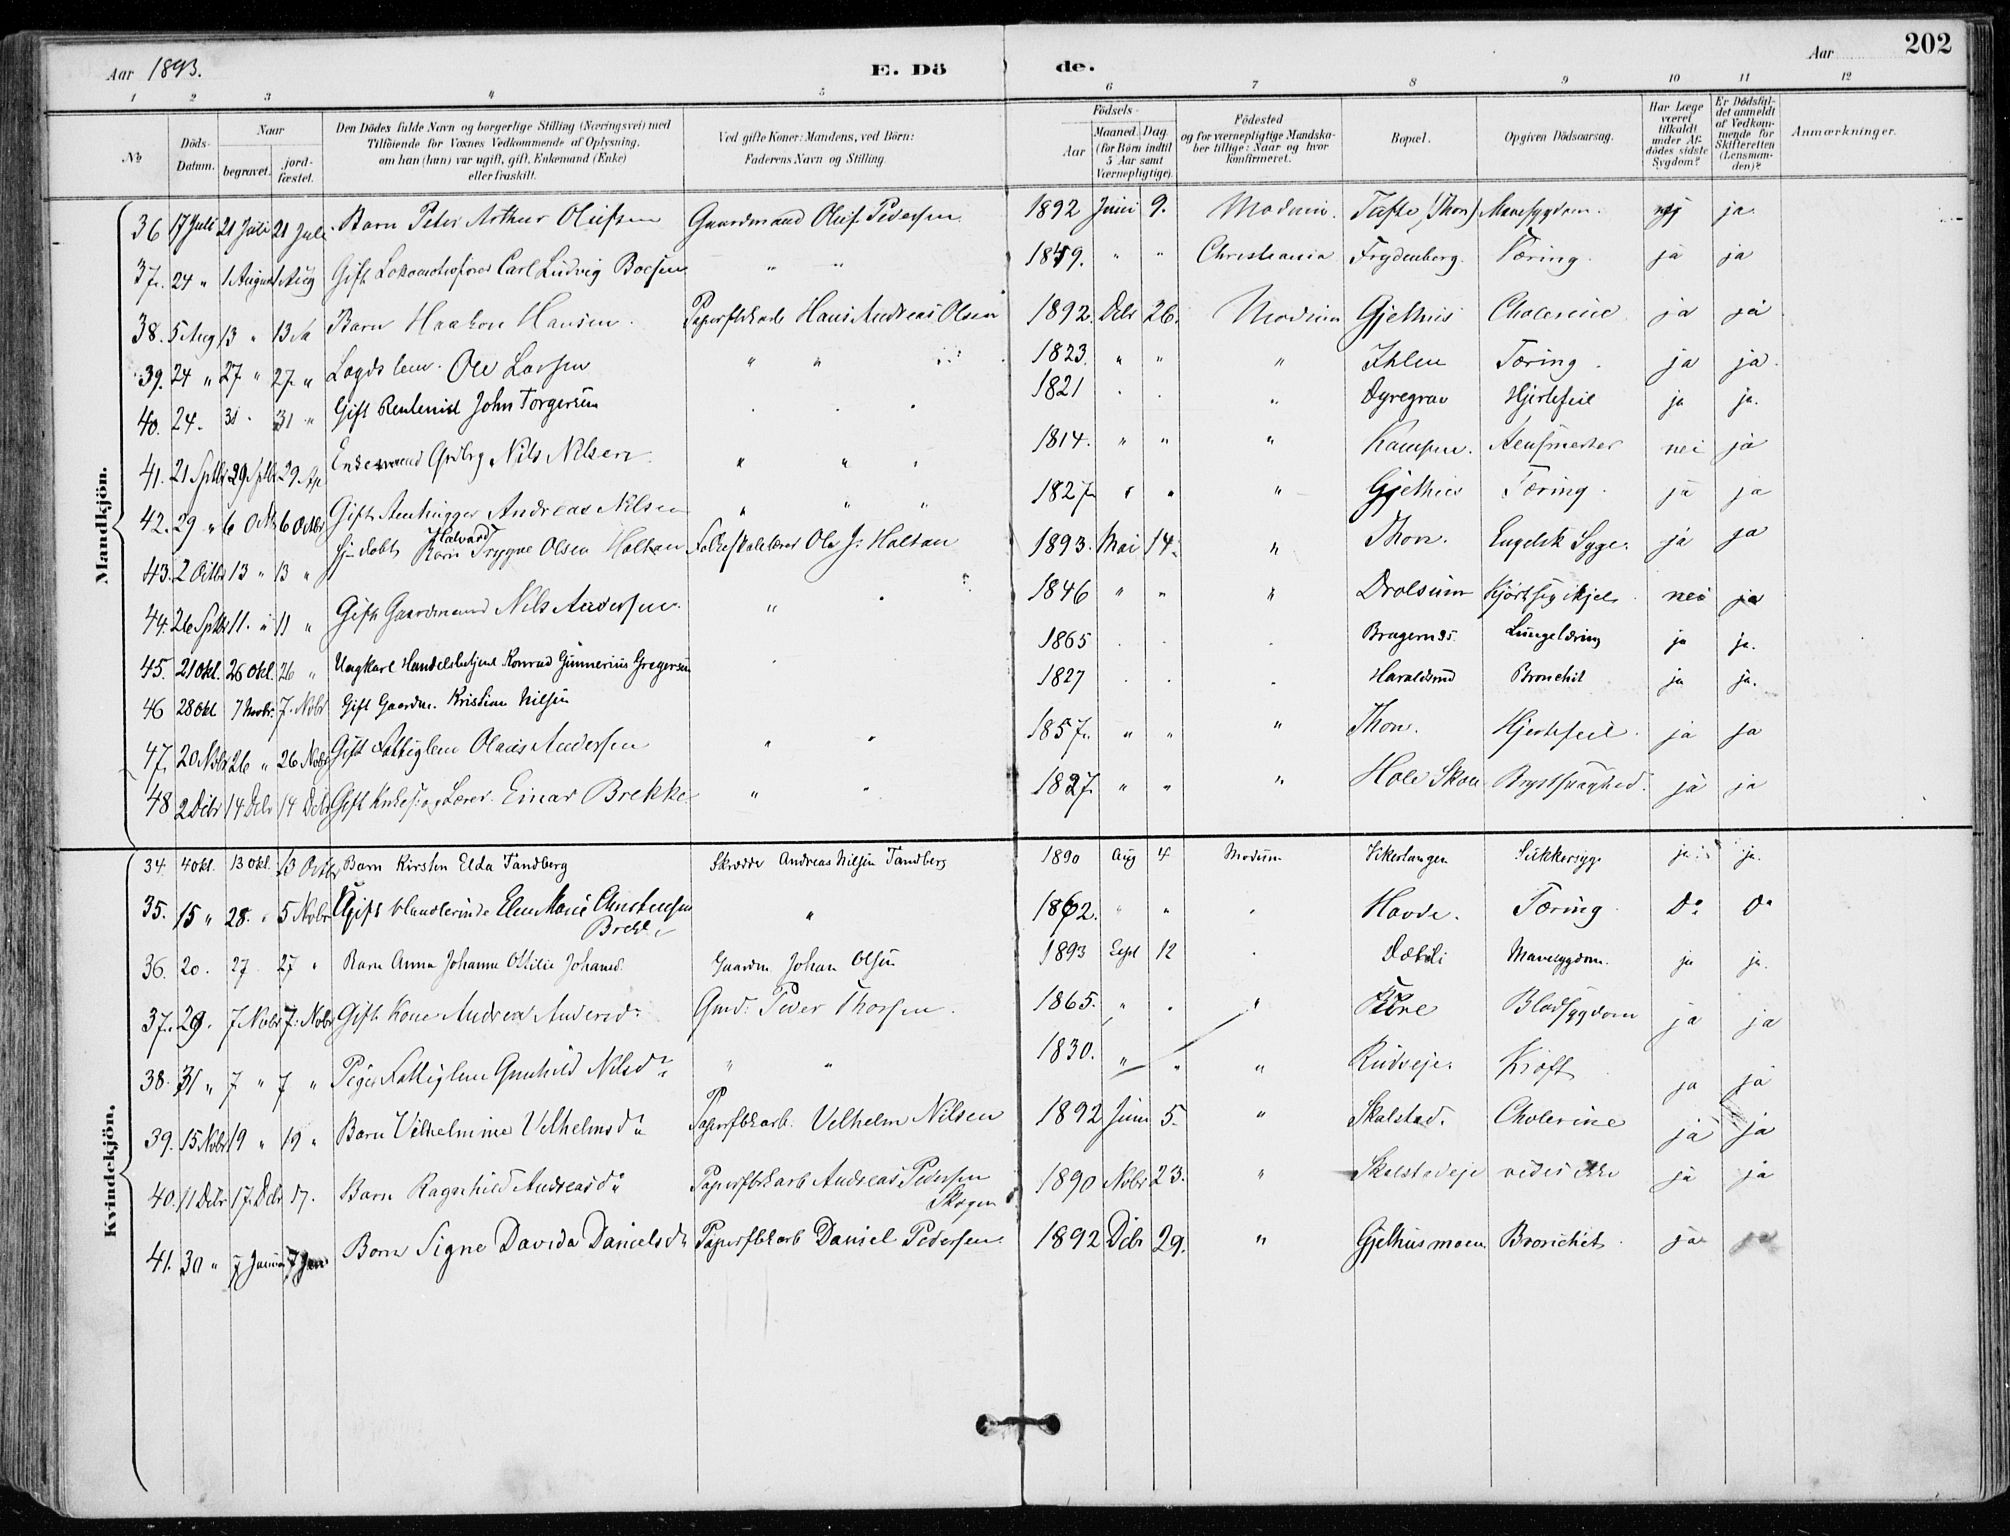 Aar 1893.
E. Dö de.
Aar
202
1 2 3 4 5 6 7 8 9 10 11 12
No
Döds-Datum.
Naar
begravet.
jord-fæstet.
Den Dödes fulde Navn og borgerlige Stilling (Næringsvei) med
Tilföiende for Voxnes Vedkommende af Oplysning,
om han (hun) var ugift, gift, Enkemand (Enke)
eller fraskilt.
Ved gifte Koner: Mandens, ved Börn:
Faderens Navn og Stilling.
Födsels-
Aar
Maaned. Dag.
(for Börn indtil
5 Aar samt
Værnepligtige).
Födested
og for værnepligtige Mandska-
ber tillige: Naar og hvor
konfirmeret.
Bopæl.
Opgiven Dödsaarsag.
Har Læge
været
tilkaldt
under Af-
dödes sidste
Sygdom?
Er Dödsfal-
det anmeldt
af Vedkom-
mende for
Skifteretten
(Lensman-
den)?
Anmærkninger.
Mandkjön.
36 17 Juli 21 Juli 21 Juli Barn Peter Arthur Olufsen Gaardmand Oluf Pedersen 1892 Juni 9. Modum. Tufte (Thon) Mavesygdom. nej ja
37. 24 " 1 August 1 Aug Gift Lokomotivfører Carl Ludvig Boesen " " 1859. " " Christiania Frydenberg. Tæring. ja ja
38. 5 Aug 13 " 13 Barn Haakon Hansen. Papirfbkarb Hans Andreas Olsen 1892. Debr 26. Modum Gjethus Cholerine ja ja
39. 24 " 27 " 27 " Lægdslem. Ole Larsen " " 1823. " " " Ihlen Tæring. ja ja.
40. 24. 31 " 31 " Gift Rentenist John Torgersen 1821 " Dyregrav Hjertefeil ja ja.
41. 21 Sptbr 29 Sptbr 29 Sp Enkemand Nils Nilsen. " " 1814. " " " Kampen. nei ja
42. 29 " 6 Oktbr 6 Octbr Gift Andreas Nilsen " " " 1827 " " " Gjethus Tæring. ja ja
43. 2 Octbr 13 " 13 " Halvard Trygve Olsen Holtan Folkeskolelærer Ole J. Holtan 1893. Mai 14. " Thon. Engelsk Syge. ja ja
44. 26 Sptbr 11. " 11 " Gift Gaardmand Nils Andersen. " 1846 " " " Drolsum nei ja
45. 21 Okt. 26 Okt. 26 " Ungkarl Handelsbetjent Konrad Gunnerius Gregersen 1865 Bragernes. Lungetæring ja ja.
46 28 Okt 7 Novbr. 7. Nobr Gift Gaardm. Kristian Nilsen 1827 Haraldrud Bronchit ja ja.
47. 20 Nobr 26 " 26 Nobr Gift Fattiglem Olaus Andersen " " 1857. " " " Thon. Hjertefeil. ja ja
48 2 Debr 14 Debr 14 Debr Gift Kirkes. og Lærer. Einar Brekke " " 1827. " " " Hole Skole Brystsvaghed. ja ja
Kvindekjön.
34. 4 Okt. 13 Okt. 13 Octbr Barn Kirsten Elda Tandberg Skrædder Andreas Nilsen Tandberg 1890 Aug 4 Modum Vikerlangen Sukkersyge ja ja.
35. 15 " 28. " 5 Nobr Gift Handlerinde Elen Marie Christensen " 1862. " " Hovde. Tæring. Do Do
36. 20. 27 27 " Barn Anna Johanne Ottilie Johansd. Gaardm. Johan Olsen 1893 Sept 12 Mavesygdom. ja ja.
37. 29. 7 Nobr 7. Nobr Gift Kone Andrea Andersdr Gmd. Peder Thorsen. 1865. " " " Blodsygdom ja ja
38. 31 " 7 " 7 " Pige Fattiglem Gunhild Nilsdr " " 1830. " " " Rudseje. Kræft ja ja
39. 15 Nobr 19 " 19 " Barn Vilhelmine Vilhelmsdr Papirfbkarb. Vilhelm Nilsen 1892 Juni 5. " Skalstad. Cholerine ja ja
40. 11 Debr 17. Debr 17. Barn Ragnhild Andreasdr Papirfbkarb Andreas Pedersen
Skogen 1890 Nobr 23. " Skalstadeje vides ikke ja ja
41. 30 " 7 Januar 7 Jan Barn Signe Davida Danielsdr Papirfbkarb Daniel Pedersen 1892 Debr 29. " Gjethusmoen Bronchit. ja ja